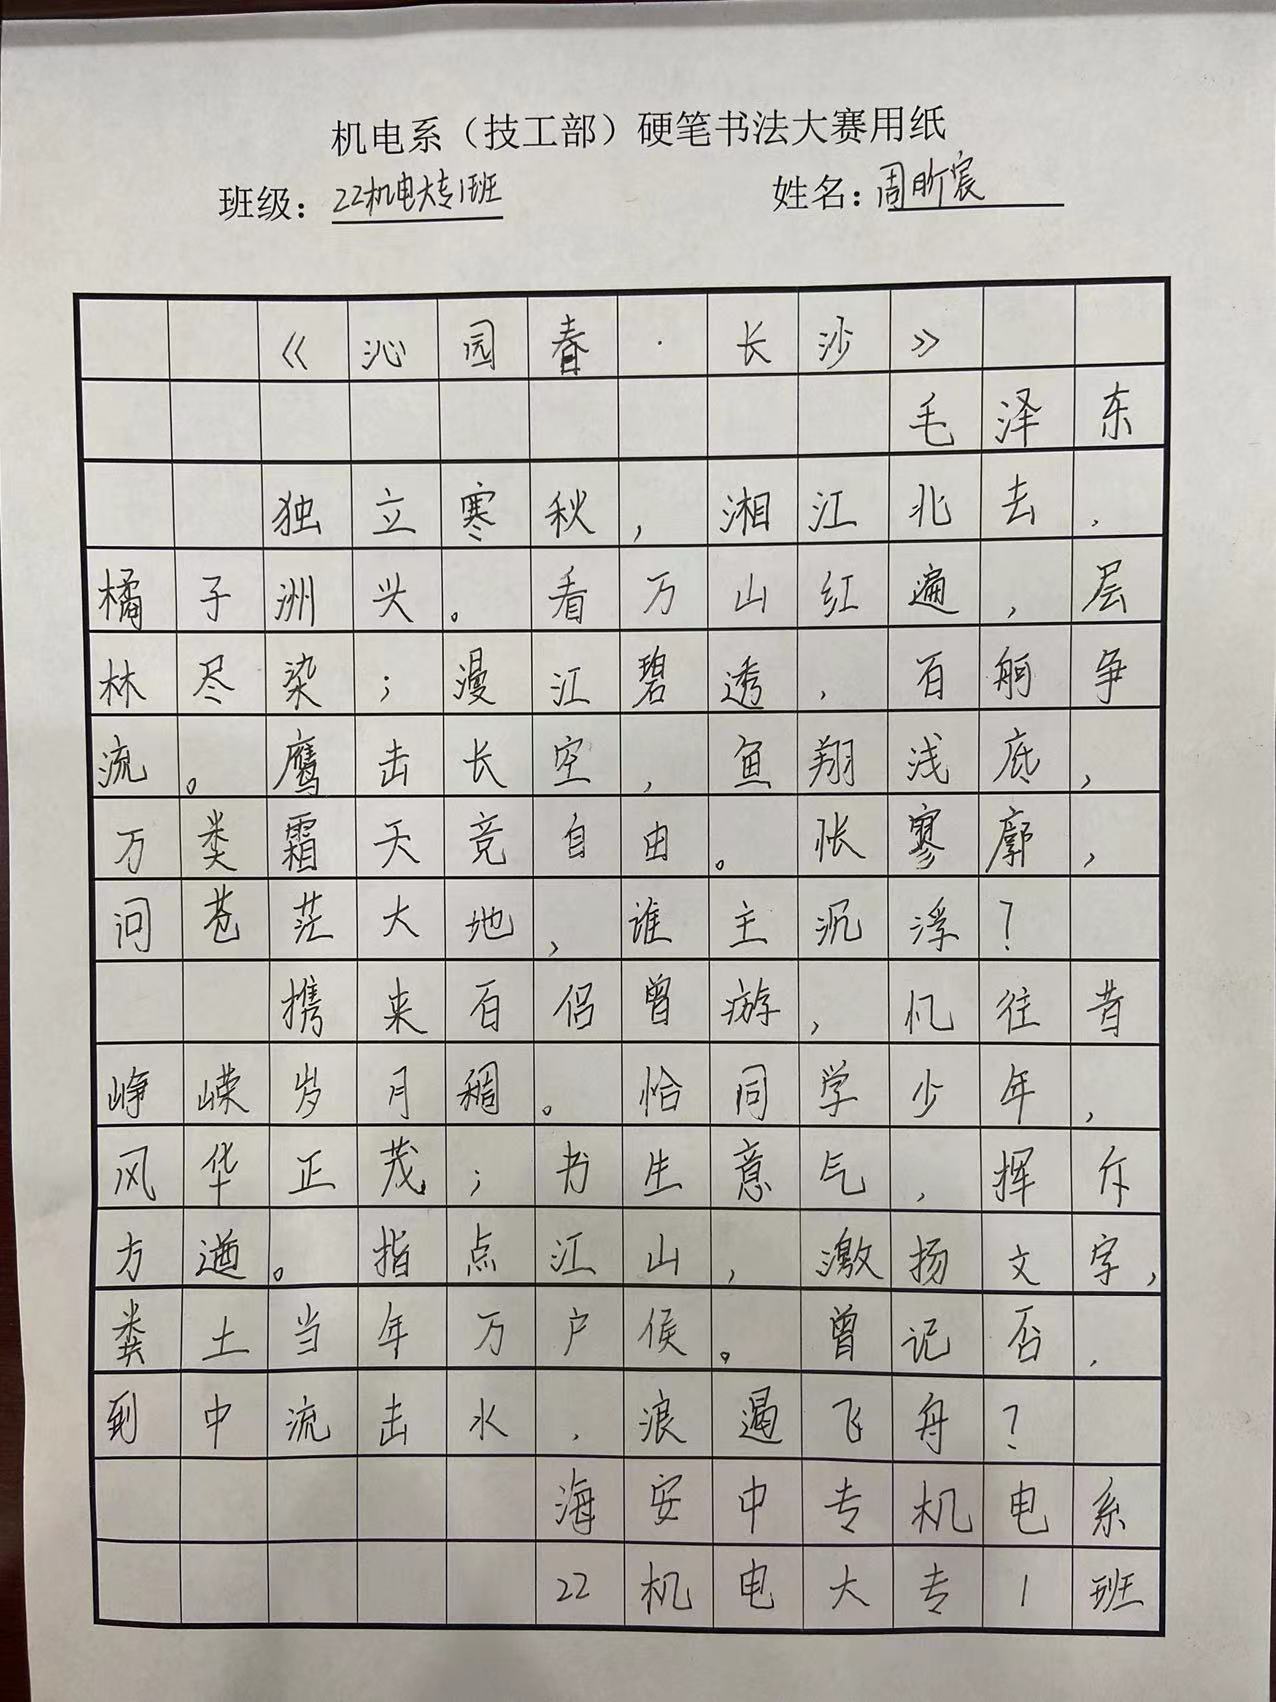 机电系（技工部）硬笔书法大赛用纸
班级：22机电大专1班 姓名：周昕宸
《沁园春·长沙》
毛泽东
独立寒秋，湘江北去，
橘子洲头。看万山红遍，层
林尽染；漫江碧透，百舸争
流。鹰击长空，鱼翔浅底，
万类霜天竞自由。怅寥廓，
问苍茫大地，谁主沉浮？
携来百侣曾游，忆往昔
峥嵘岁月稠。恰同学少年，
风华正茂；书生意气，挥斥
方遒。指点江山，激扬文字，
粪土当年万户侯。曾记否，
到中流击水，浪遏飞舟？
海安中专机电系
22机电大专1班